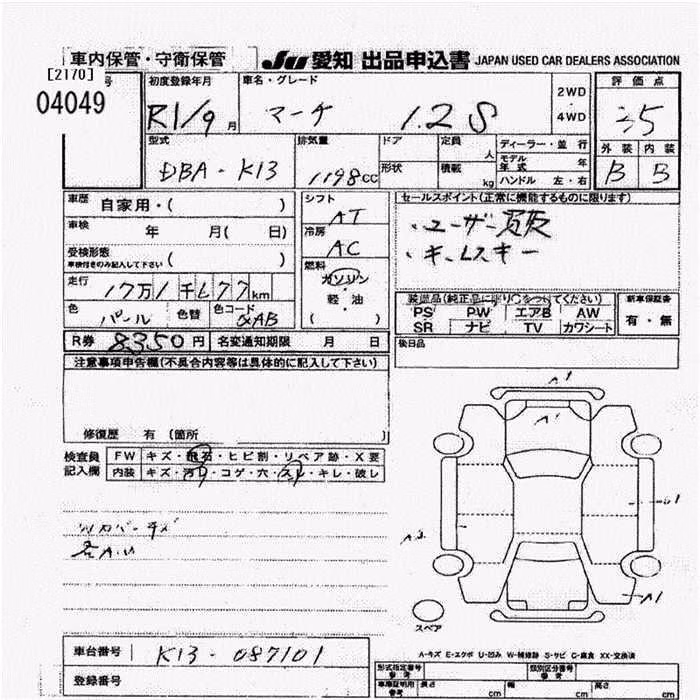 車内保管・守衛保管
JU 愛知 出品申込書 JAPAN USED CAR DEALERS ASSOCIATION
[2170] 号
04049
初度登録年月 R1/9 月
車名・グレード マーチ 1.2 S
2WD ・ 4WD
評価点 3.5
型式 DBA-K13
排気量 1198cc
ドア
形状
定員 人
積載 kg
ディーラー・並行
モデル年式 年
ハンドル 左・右
外装 B
内装 B
車歴 自家用・( )
車検 年 月( 日)
受検形態 ( )
車検付きのみ記入して下さい
走行 17万1千677km
色 パール 色替 色コード QAB
シフト AT
冷房 AC
燃料 ガソリン
軽・油
( )
セールスポイント(正常に機能するものに限ります)
・ユーザー買取
・キーレスキー
装備品(純正品に限り○をつけてください)
PS PW エアB AW
SR ナビ TV カワシート
新車保証書
有・無
R券 8350円 名変通知期限 月 日
後日品
注意事項申告欄(不具合内容等は具体的に記入して下さい)
修復歴 有 (箇所 )
検査員記入欄
FW キズ・飛石・ヒビ割・リペア跡・X要
内装 キズ・汚れ・コゲ・穴・スレ・キレ・破レ
A1
A1
A2
A1
スペア
A-キズ E-エクボ U-凹み W-補修跡 S-サビ C-腐食 XX-交換済
車台番号 K13-087101
登録番号
形式指定番号 参考
類別区分番号 参考
車庫証明用 参考 長さ cm 幅 cm 高さ cm